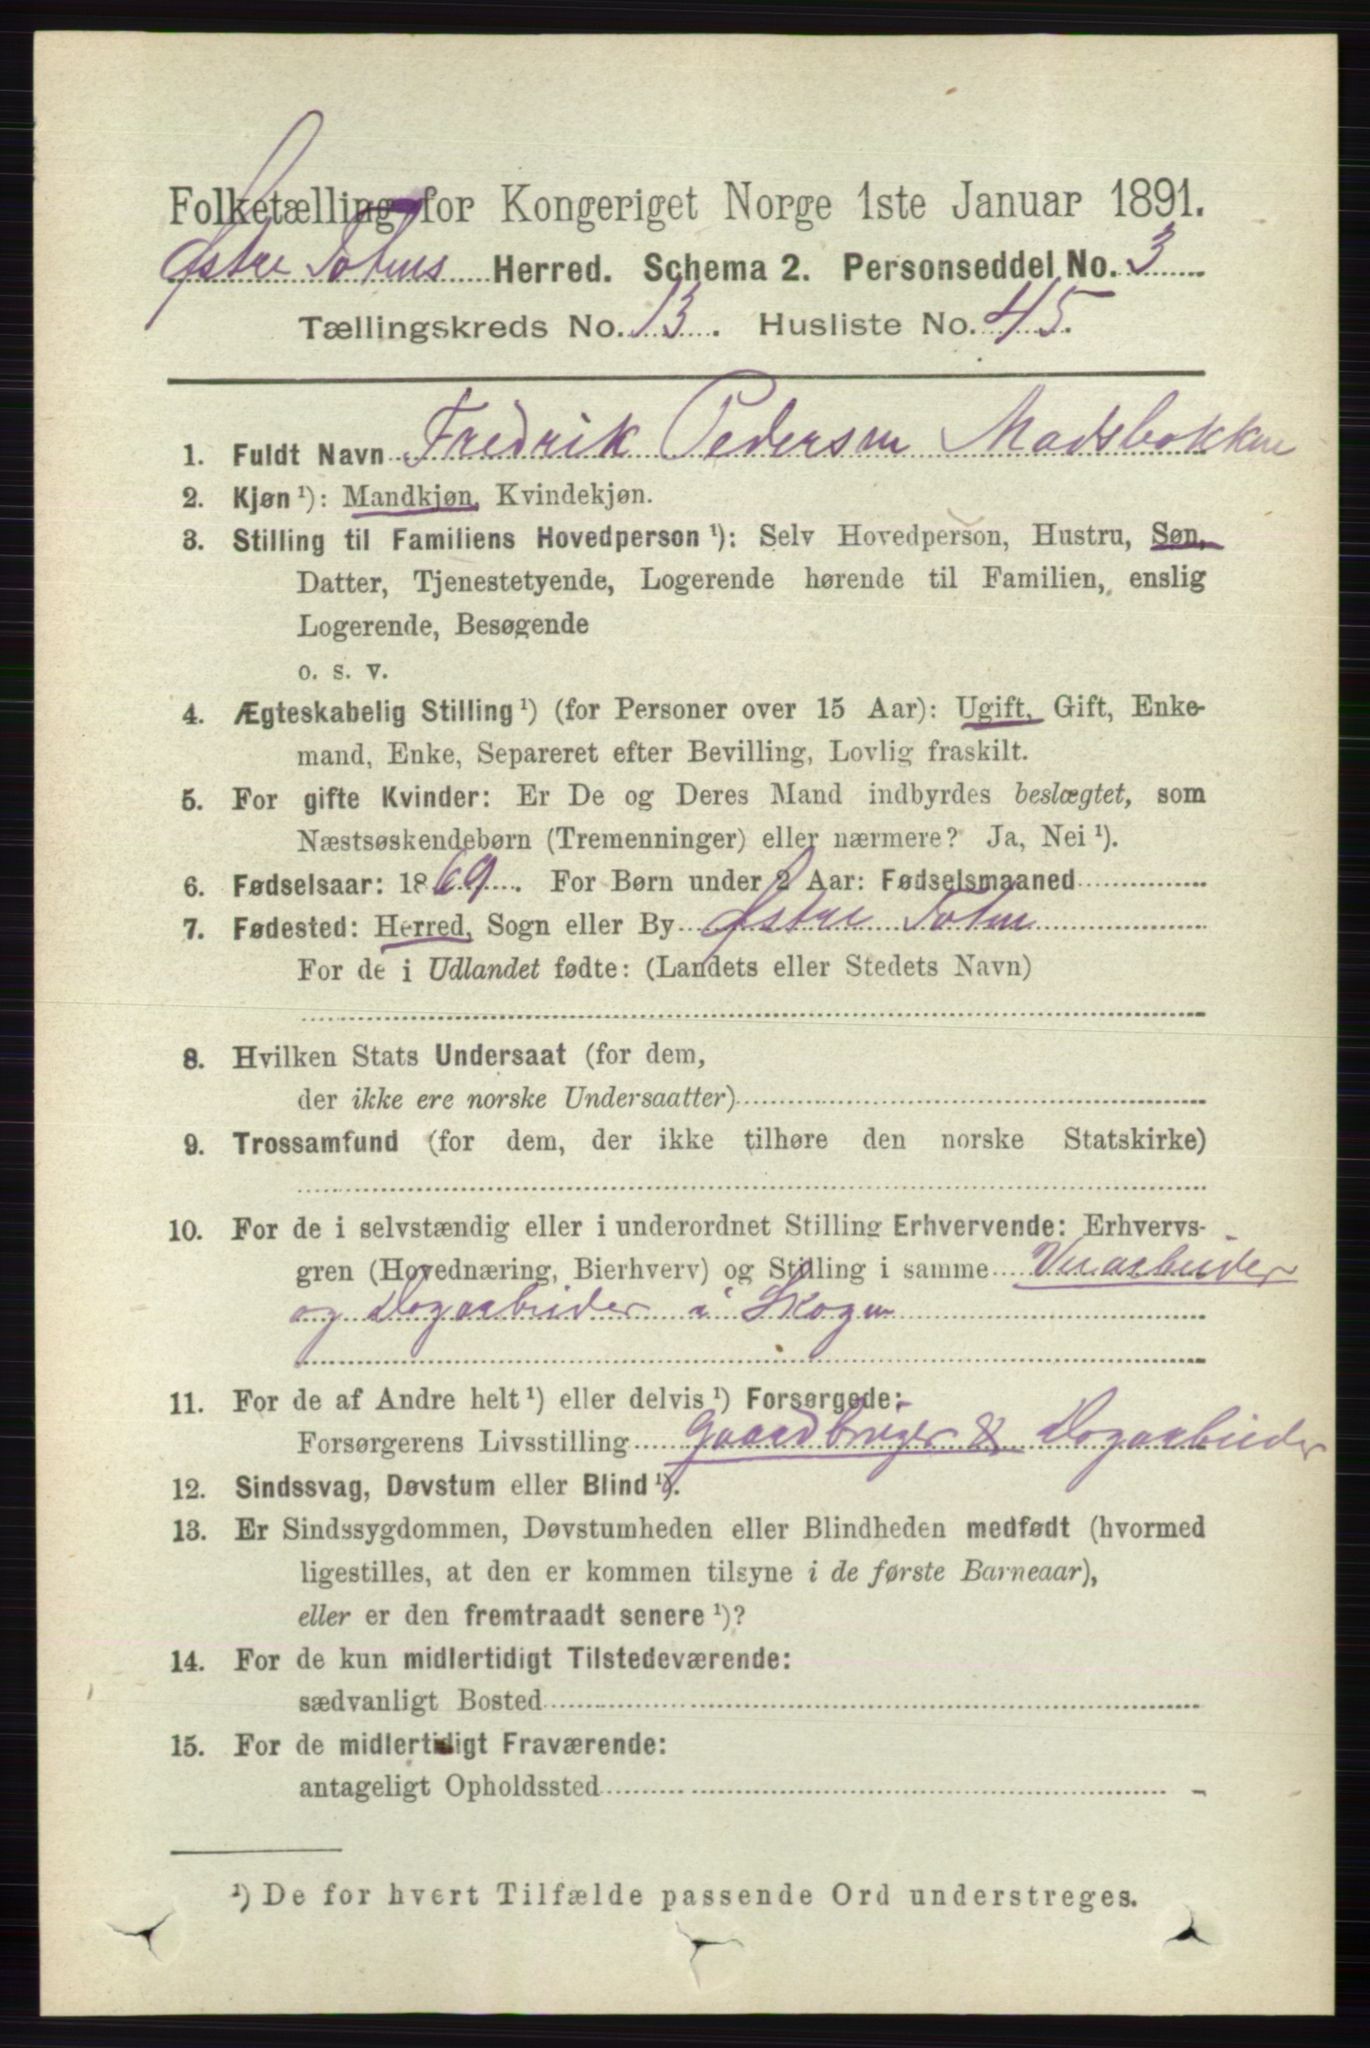 Folketælling for Kongeriget Norge 1ste Januar 1891.
Østre Totens Herred. Schema 2. Personseddel No. 3
Tællingskreds No. 13. Husliste No. 45.
1. Fuldt Navn Fredrik Pedersen Madsbakken
2. Kjøn ¹): Mandkjøn, Kvindekjøn.
3. Stilling til Familiens Hovedperson ¹): Selv Hovedperson, Hustru, Søn,
Datter, Tjenestetyende, Logerende hørende til Familien, enslig
Logerende, Besøgende
o. s. v.
4. Ægteskabelig Stilling ¹) (for Personer over 15 Aar): Ugift, Gift, Enke-
mand, Enke, Separeret efter Bevilling, Lovlig fraskilt.
5. For gifte Kvinder: Er De og Deres Mand indbyrdes beslægtet, som
Næstsøskendebørn (Tremenninger) eller nærmere? Ja, Nei ¹).
6. Fødselsaar: 1869. For Børn under 2 Aar: Fødselsmaaned
7. Fødested: Herred, Sogn eller By Østre Toten
For de i Udlandet fødte: (Landets eller Stedets Navn)
8. Hvilken Stats Undersaat (for dem,
der ikke ere norske Undersaatter)
9. Trossamfund (for dem, der ikke tilhøre den norske Statskirke)
10. For de i selvstændig eller i underordnet Stilling Erhvervende: Erhvervs-
gren (Hovednæring, Bierhverv) og Stilling i samme Veiarbeider
og Dagarbeider i Skogen
11. For de af Andre helt ¹) eller delvis ¹) Forsørgede:
Forsørgerens Livsstilling Gaardbruger & Dagarbeider
12. Sindssvag, Døvstum eller Blind ¹).
13. Er Sindssygdommen, Døvstumheden eller Blindheden medfødt (hvormed
ligestilles, at den er kommen tilsyne i de første Barneaar),
eller er den fremtraadt senere ¹)?
14. For de kun midlertidigt Tilstedeværende:
sædvanligt Bosted
15. For de midlertidigt Fraværende:
antageligt Opholdssted
¹) De for hvert Tilfælde passende Ord understreges.